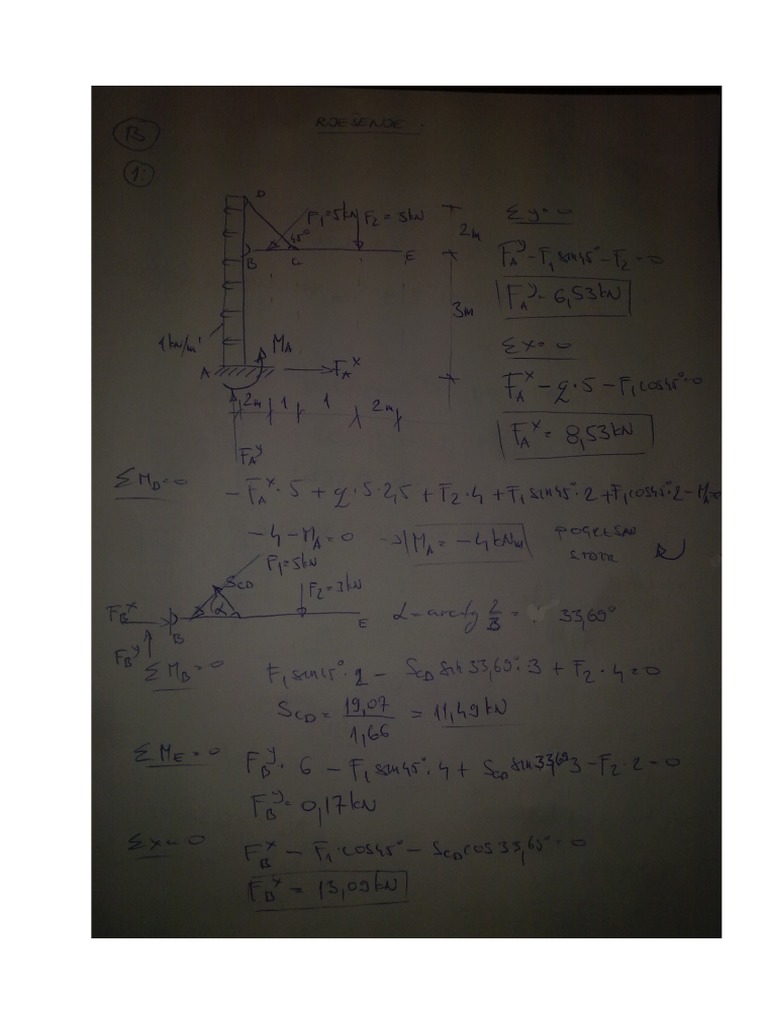 B
RJEŠENJE:
1.
D
F1=5kN F2=3kN
45°
B C E
2m
3m
1kN/m'
MA
A
FA^x
2m 1 1 2m
FA^y
Σy=0
FA^y - F1 sin45° - F2 = 0
FA^y = 6,53kN
Σx=0
FA^x - q·5 - F1cos45°=0
FA^x = 8,53kN
ΣMD=0 -FA^x·5 + q·5·2,5 + F2·4 + F1sin45°·2 + F1cos45°·2 - MA=0
-4 - MA = 0 → MA = -4kNm
POGREŠAN
F1=5kN
SCD
F2=3kN
FB^x
α
B E
FB^y
α = arctg 2/3 = 33,69°
ΣMB=0 F1sin45°·2 - SCD sin33,69°·3 + F2·4=0
SCD = 19,07/1,66 = 11,49kN
ΣME=0 FB^y·6 - F1sin45°·4 + SCD sin33,69°3 - F2·2=0
FB^y = 0,17kN
Σx=0 FB^x - F1·cos45° - SCD cos33,69°=0
FB^x = 13,09kN